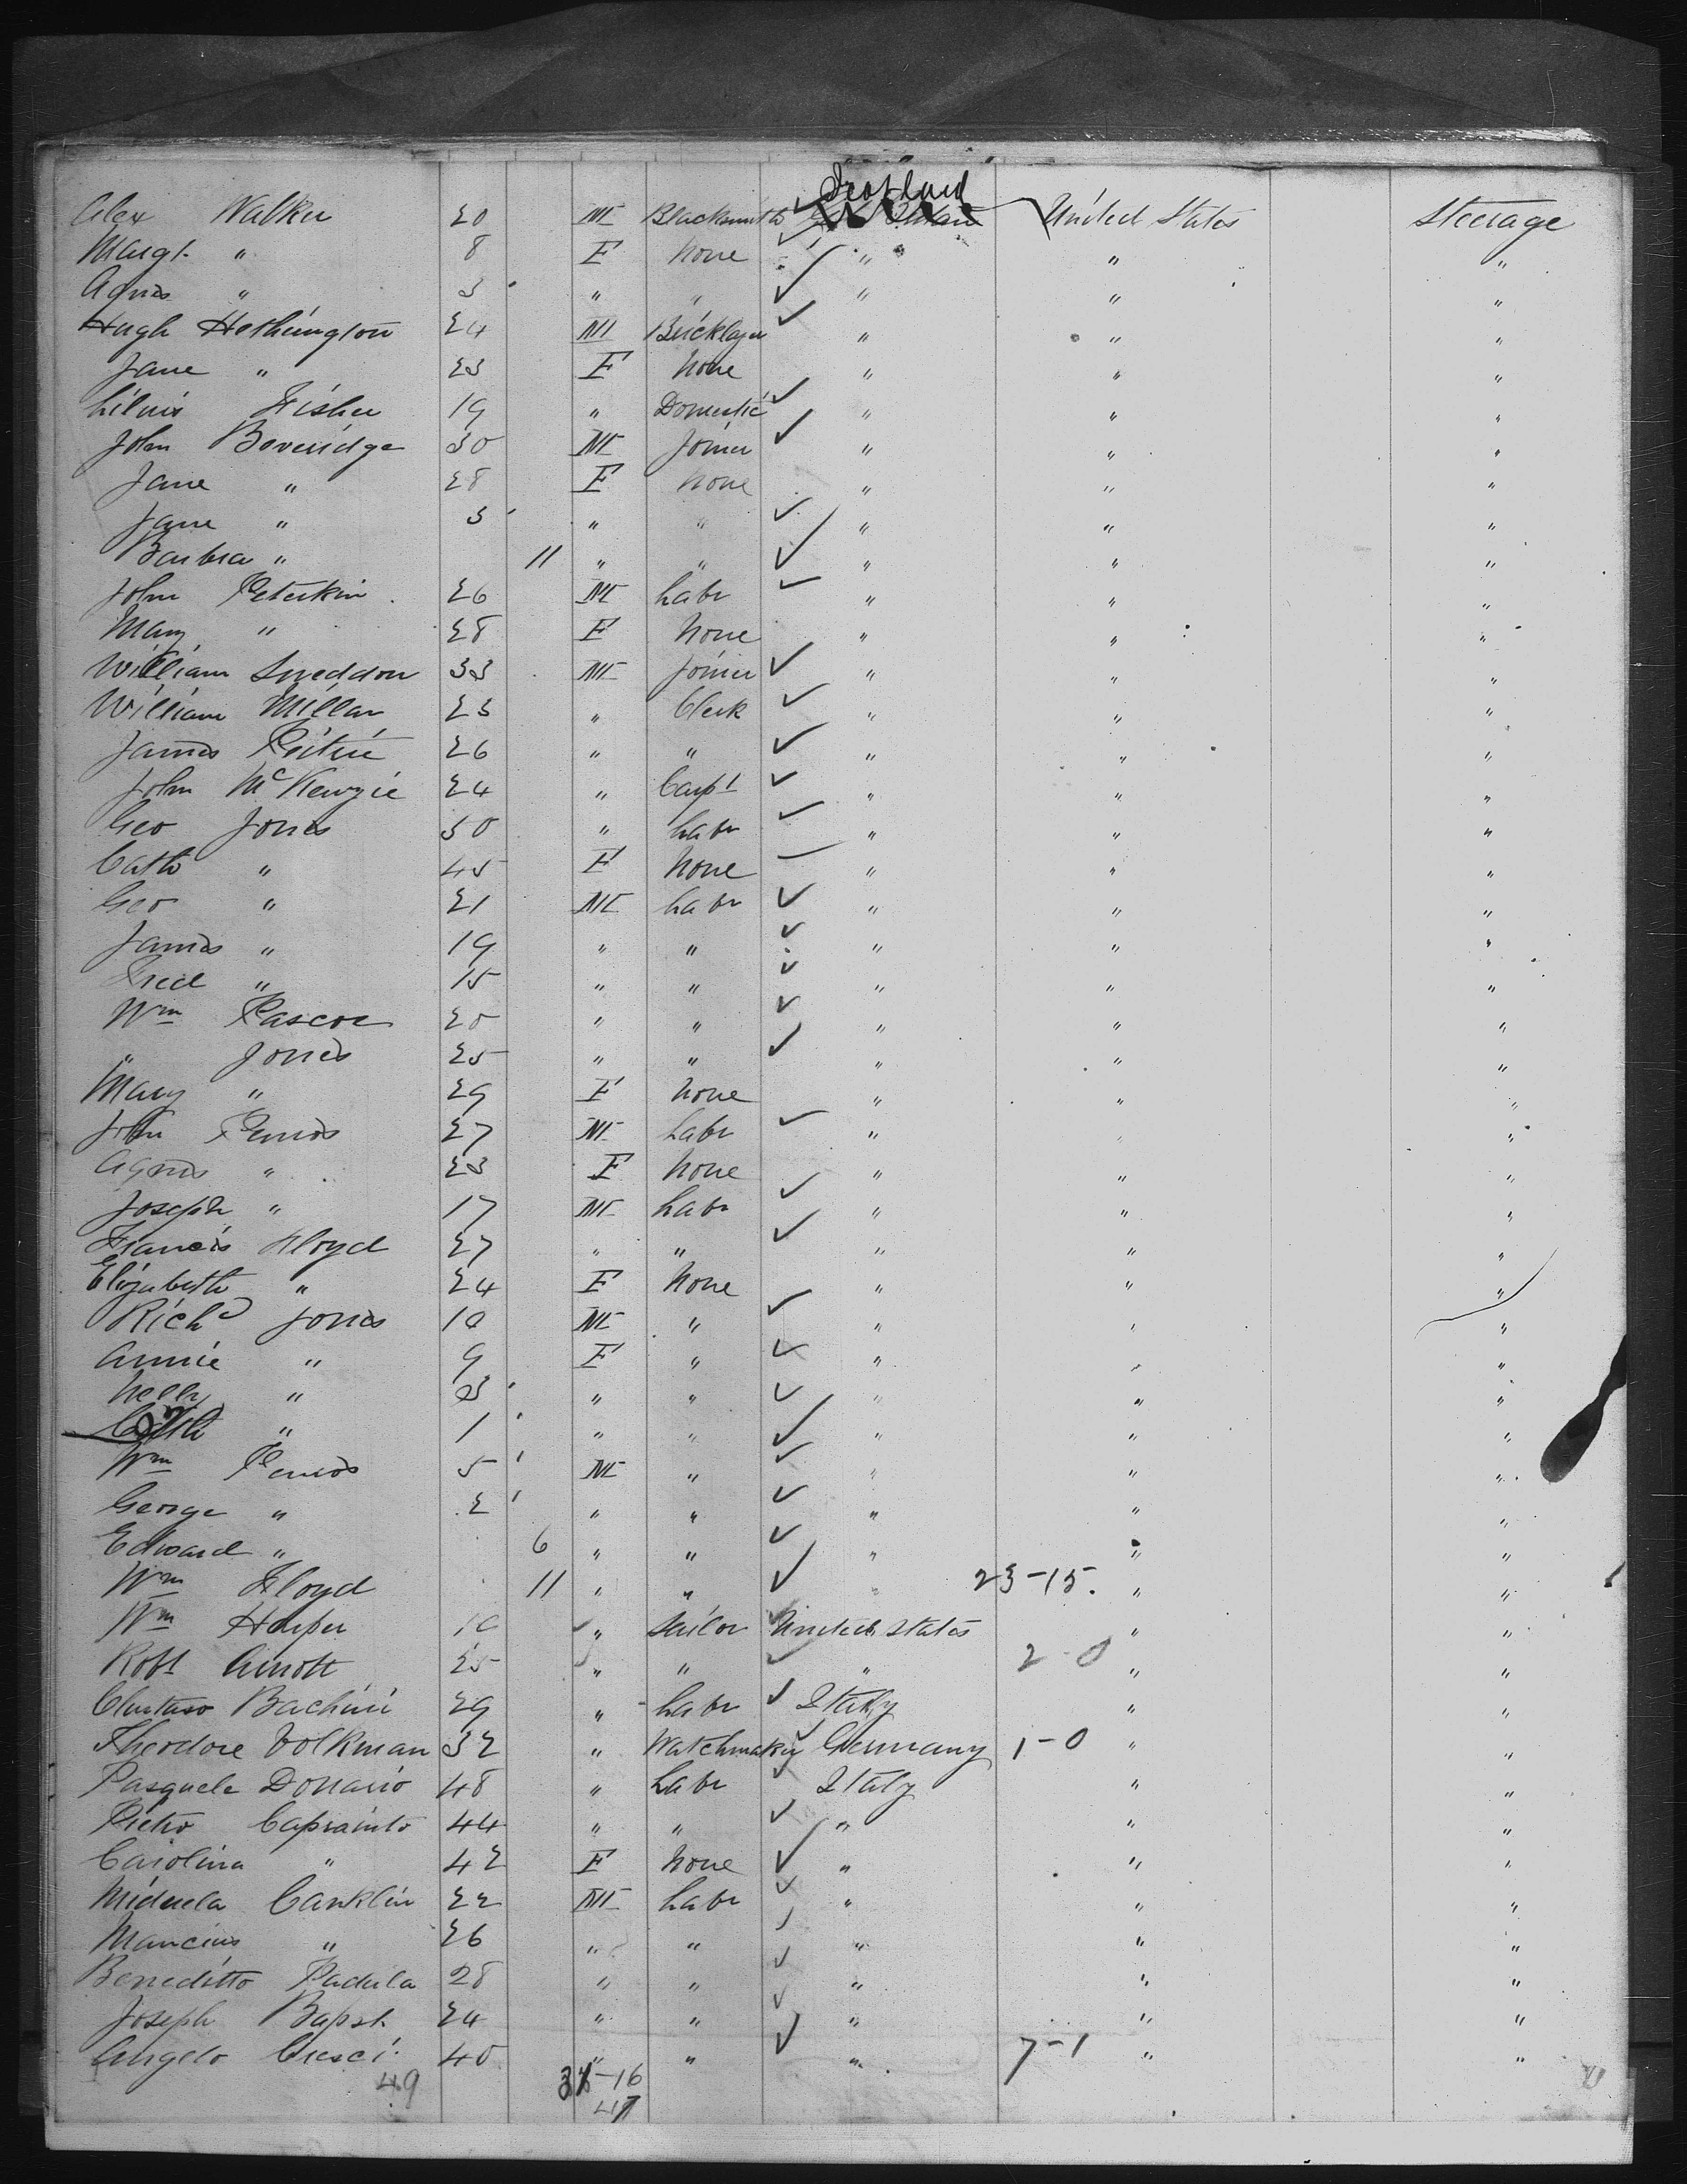 Scotland
Alex Walker 20 M Blacksmith United States Steerage
Margt " 8 F None " " "
Agnes " 3 " " " " "
Hugh Hethington 24 M Bricklayer " " "
Jane " 23 F None " " "
Fisher 19 " Domestic " " "
John Beveridge 30 M Joiner " " "
Jane " 28 F None " " "
Jane " 3 " " " " "
Barbra " 11 " " " " "
John Peterkin 26 M Labr " " "
Mary " 28 F None " " "
William Sneddon 33 M Joiner " " "
William Millar 23 " Clerk " " "
James Ritchie 26 " " " " "
John McKenzie 24 " Carpt " " "
Geo Jones 50 " Labr " " "
Cath " 45 F None " " "
Geo " 21 M Labr " " "
James " 19 " " " " "
Fred " 15 " " " " "
Wm Pascoe 20 " " " " "
" Jones 25 " " " " "
Mary " 29 F None " " "
John 27 M Labr " " "
Agnes " 23 F None " " "
Joseph " 17 M Labr " " "
Francis Floyd 27 " " " " "
Elizabeth " 24 F None " " "
Richd Jones 10 M " " " "
Annie " 9 F " " " "
Nelly " 3 " " " " "
Cath " 1 " " " " "
Wm 5 M " " " "
George " 2 " " " " "
Edward " 6 " " " " "
Wm Floyd 11 " " " 23-15. " "
Wm Harper " Sailor United States " "
Robt Arnott 25 " " " 2-0 " "
Bachini 29 " Labr Italy " "
Theodore Volkman 32 " Watchmaker Germany 1-0 " "
Pasquele Donario 48 " Labr Italy " "
Pietro Caprainto 44 " " " " "
Carolina " 42 F None " " "
Canklin 22 M Labr " " "
Mancius " 26 " " " " "
Beneditto Padula 28 " " " " "
Joseph Bapst 24 " " " " "
Angelo Cresci 40 " " " 7-1 " "
49 -16